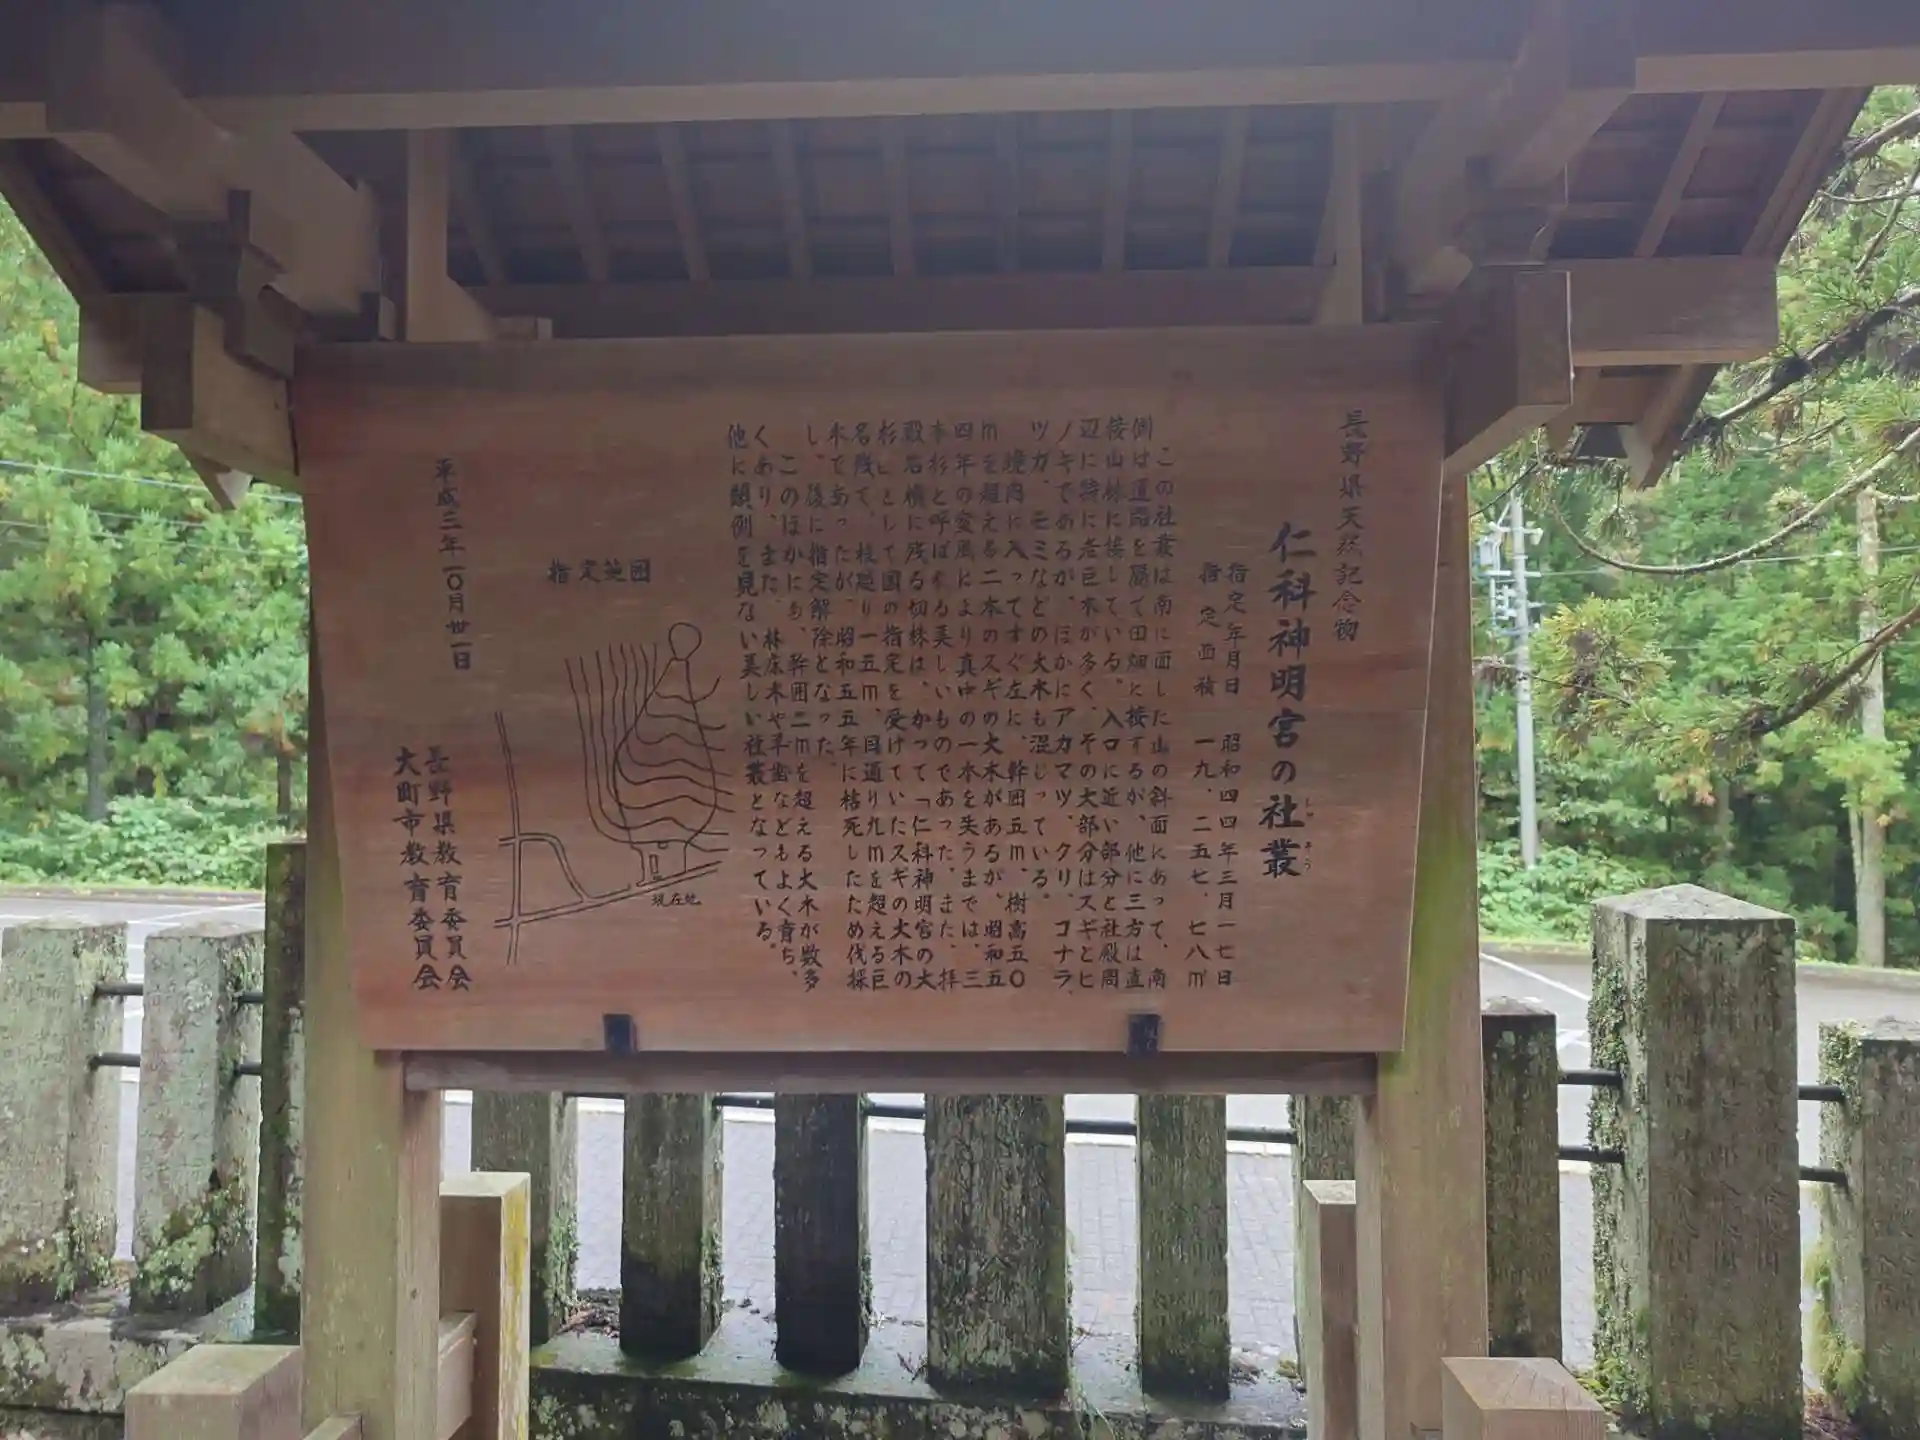 長野県天然記念物
仁科神明宮の社叢
しゃ そう
指定年月日 昭和四四年三月一七日
指定面積 一九、二五七、七八㎡
この社叢は南に面した山の斜面にあって、南
側は道路を隔て田畑に接するが、他に三方は直
接山林に接している。入口に近い部分と社殿周
辺に特に老巨木が多く、その大部分はスギとヒ
ノキであるが、ほかにアカマツ、クリ、コナラ、
ツガ、モミなどの大木も混じっている。
境内に入ってすぐ左に、幹囲五m、樹高五〇
mを超える二本のスギの大木があるが、昭和五
四年の変風により真中の一本を失うまでは、三
本杉と呼ばれる美しいものであった。また、拝
殿右横に残る切株は、かつて「仁科神明宮の大
杉」として国の指定を受けていたスギの大木の
名残で、枝廻り一五m、目通り九mを超える巨
木であったが、昭和五五年に枯死したため伐採
し、後に指定解除となった。
このほかにも、幹囲二mを超える大木が数多
くあり、また、林床木や羊歯などもよく育ち、
他に類例を見ない美しい社叢となっている。
指定地図
現在地
平成三年一〇月卅一日
長野県教育委員会
大町市教育委員会